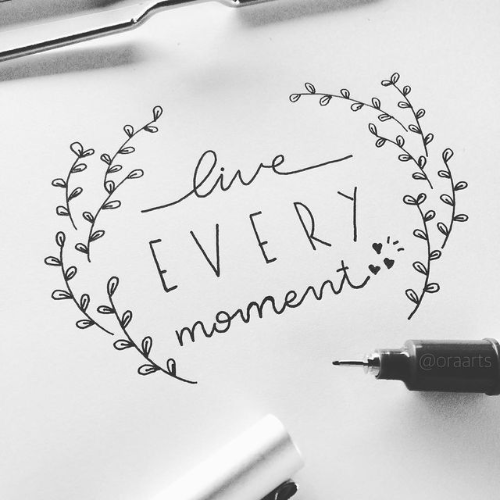 live
EVERY
moment
@oraarts